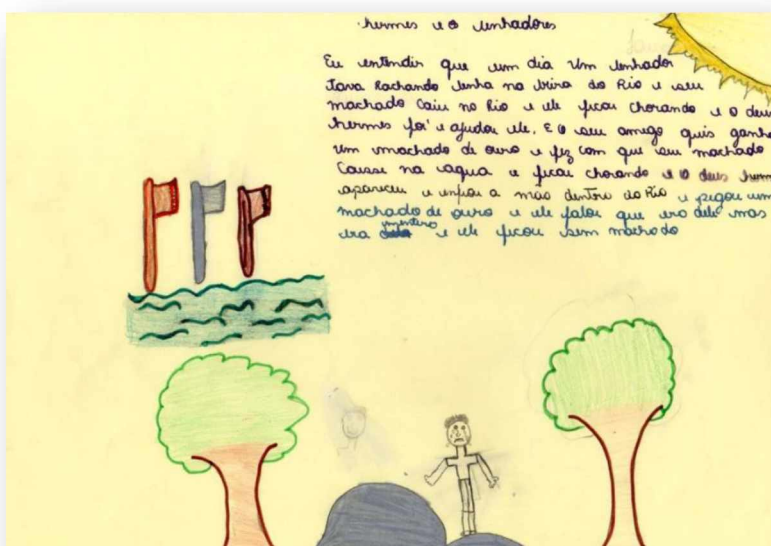 hermes e o lenhadores
Eu entendir que um dia Um lenhador
tava Rachando lenha na beira do Rio e seu
machado Caiu no Rio e ele ficou chorando e o deus
hermes foi e ajudou ele, E o seu amigo quis ganha
Um machado de ouro e fez com que seu machado
Caisse na agua e ficou chorando e o deus herm
apareceu e enfiou a mão dentro do Rio e pegou um
machado de ouro e ele falou que era dele mas
era mentira e ele ficou sem machado